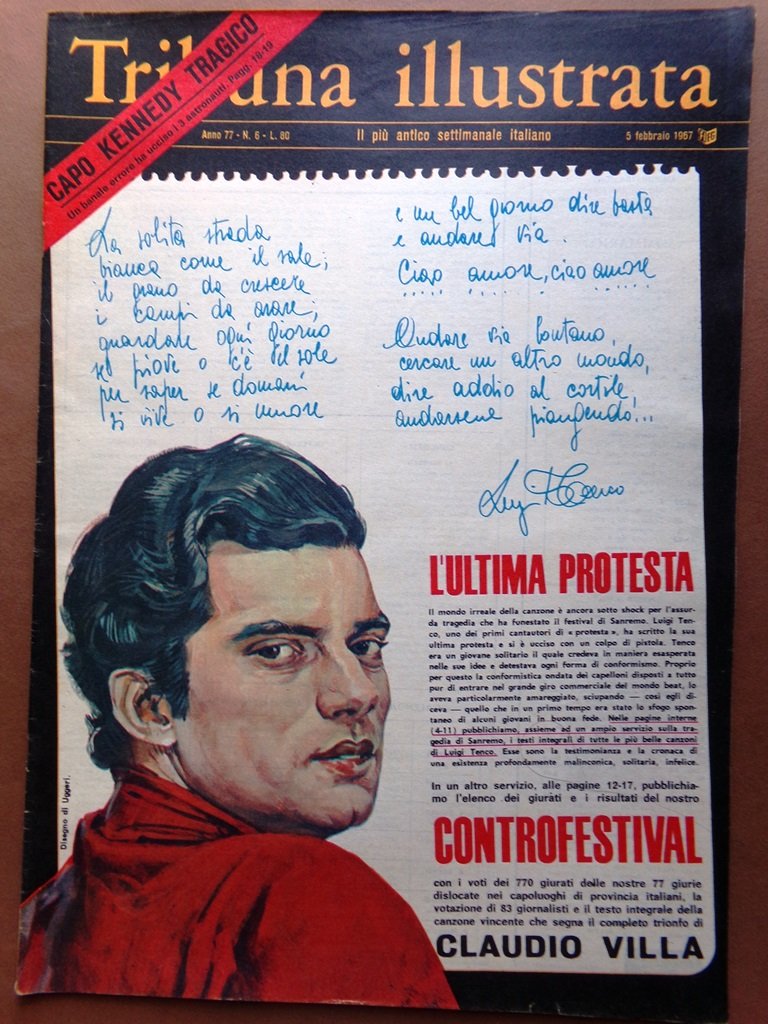 Tribuna illustrata
CAPO KENNEDY TRAGICO
Un banale errore ha ucciso i 3 astronauti. Pagg. 18-19
Anno 77 - N. 6 - L. 80
Il più antico settimanale italiano
5 febbraio 1967
La solita strada
bianca come il sale;
il grano da crescere
i campi da arare;
guardare ogni giorno
se piove o c'è il sole
per saper se domani
si vive o si muore
e un bel giorno dire basta
e andare via.
Ciao amore, ciao amore
..... ..... .. ..... ......
Andare via lontano,
cercare un altro mondo,
dire addio al cortile,
andarsene piangendo...
Luigi Tenco
L'ULTIMA PROTESTA
Il mondo irreale della canzone è ancora sotto shock per l'assur-
da tragedia che ha funestato il festival di Sanremo. Luigi Ten-
co, uno dei primi cantautori di « protesta », ha scritto la sua
ultima protesta e si è ucciso con un colpo di pistola. Tenco
era un giovane solitario il quale credeva in maniera esasperata
nelle sue idee e detestava ogni forma di conformismo. Proprio
per questo la conformistica ondata dei capelloni disposti a tutto
pur di entrare nel grande giro commerciale del mondo beat, lo
aveva particolarmente amareggiato, sciupando — così egli di-
ceva — quello che in un primo tempo era stato lo sfogo spon-
taneo di alcuni giovani in buona fede. Nelle pagine interne
(4-11) pubblichiamo, assieme ad un ampio servizio sulla tra-
gedia di Sanremo, i testi integrali di tutte le più belle canzoni
di Luigi Tenco. Esse sono la testimonianza e la cronaca di
una esistenza profondamente malinconica, solitaria, infelice.
In un altro servizio, alle pagine 12-17, pubblichia-
mo l'elenco dei giurati e i risultati del nostro
CONTROFESTIVAL
con i voti dei 770 giurati delle nostre 77 giurie
dislocate nei capoluoghi di provincia italiani, la
votazione di 83 giornalisti e il testo integrale della
canzone vincente che segna il completo trionfo di
CLAUDIO VILLA
Disegno di Uggeri.